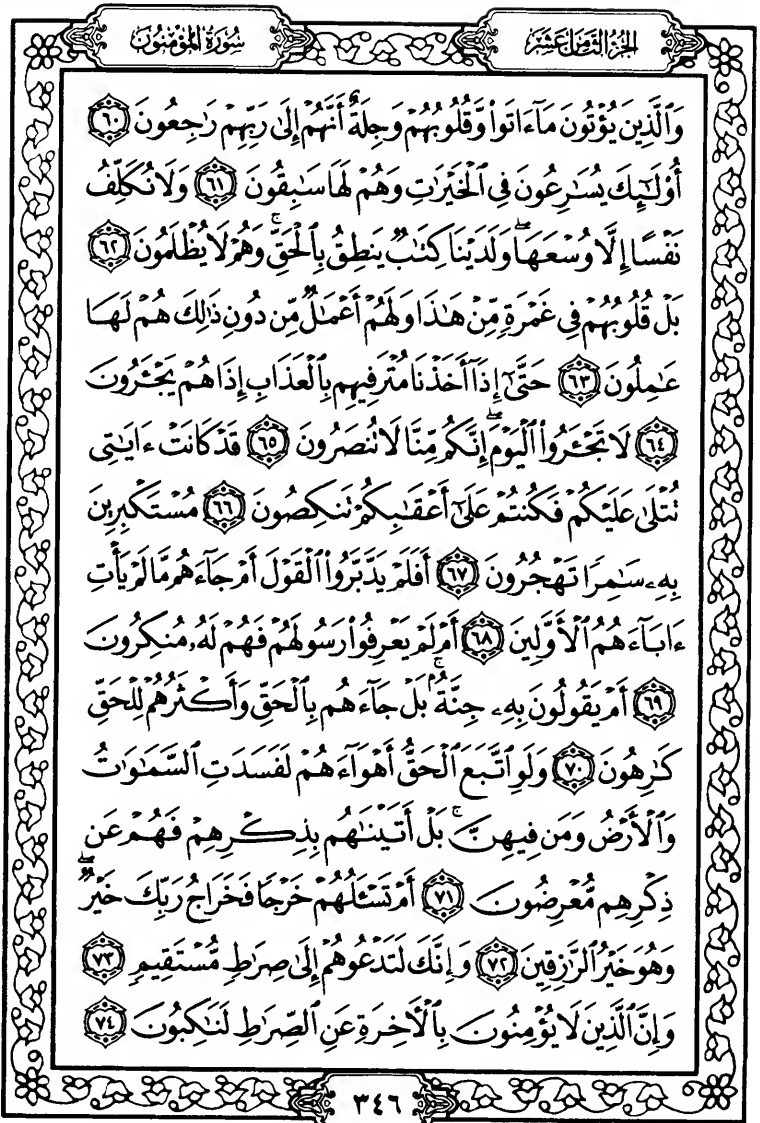 الجزء الثامن عشر
سورة المؤمنون
وَٱلَّذِينَ يُؤۡتُونَ مَآ ءَاتَواْ وَّقُلُوبُهُمۡ وَجِلَةٌ أَنَّهُمۡ إِلَىٰ رَبِّهِمۡ رَٰجِعُونَ ٦٠
أُوْلَٰٓئِكَ يُسَٰرِعُونَ فِي ٱلۡخَيۡرَٰتِ وَهُمۡ لَهَا سَٰبِقُونَ ٦١ وَلَا نُكَلِّفُ
نَفۡسًا إِلَّا وُسۡعَهَاۖ وَلَدَيۡنَا كِتَٰبٞ يَنطِقُ بِٱلۡحَقِّۚ وَهُمۡ لَا يُظۡلَمُونَ ٦٢
بَلۡ قُلُوبُهُمۡ فِي غَمۡرَةٖ مِّنۡ هَٰذَا وَلَهُمۡ أَعۡمَٰلٞ مِّن دُونِ ذَٰلِكَ هُمۡ لَهَا
عَٰمِلُونَ ٦٣ حَتَّىٰٓ إِذَآ أَخَذۡنَا مُتۡرَفِيهِم بِٱلۡعَذَابِ إِذَا هُمۡ يَجۡـَٔرُونَ
٦٤ لَا تَجۡـَٔرُواْ ٱلۡيَوۡمَۖ إِنَّكُم مِّنَّا لَا تُنصَرُونَ ٦٥ قَدۡ كَانَتۡ ءَايَٰتِي
تُتۡلَىٰ عَلَيۡكُمۡ فَكُنتُمۡ عَلَىٰٓ أَعۡقَٰبِكُمۡ تَنكِصُونَ ٦٦ مُسۡتَكۡبِرِينَ
بِهِۦ سَٰمِرٗا تَهۡجُرُونَ ٦٧ أَفَلَمۡ يَدَّبَّرُواْ ٱلۡقَوۡلَ أَمۡ جَآءَهُم مَّا لَمۡ يَأۡتِ
ءَابَآءَهُمُ ٱلۡأَوَّلِينَ ٦٨ أَمۡ لَمۡ يَعۡرِفُواْ رَسُولَهُمۡ فَهُمۡ لَهُۥ مُنكِرُونَ
٦٩ أَمۡ يَقُولُونَ بِهِۦ جِنَّةُۢۚ بَلۡ جَآءَهُم بِٱلۡحَقِّ وَأَكۡثَرُهُمۡ لِلۡحَقِّ
كَٰرِهُونَ ٧٠ وَلَوِ ٱتَّبَعَ ٱلۡحَقُّ أَهۡوَآءَهُمۡ لَفَسَدَتِ ٱلسَّمَٰوَٰتُ
وَٱلۡأَرۡضُ وَمَن فِيهِنَّۚ بَلۡ أَتَيۡنَٰهُم بِذِكۡرِهِمۡ فَهُمۡ عَن
ذِكۡرِهِم مُّعۡرِضُونَ ٧١ أَمۡ تَسۡـَٔلُهُمۡ خَرۡجٗا فَخَرَاجُ رَبِّكَ خَيۡرٞۖ
وَهُوَ خَيۡرُ ٱلرَّٰزِقِينَ ٧٢ وَإِنَّكَ لَتَدۡعُوهُمۡ إِلَىٰ صِرَٰطٖ مُّسۡتَقِيمٖ ٧٣
وَإِنَّ ٱلَّذِينَ لَا يُؤۡمِنُونَ بِٱلۡأٓخِرَةِ عَنِ ٱلصِّرَٰطِ لَنَٰكِبُونَ ٧٤
٣٤٦